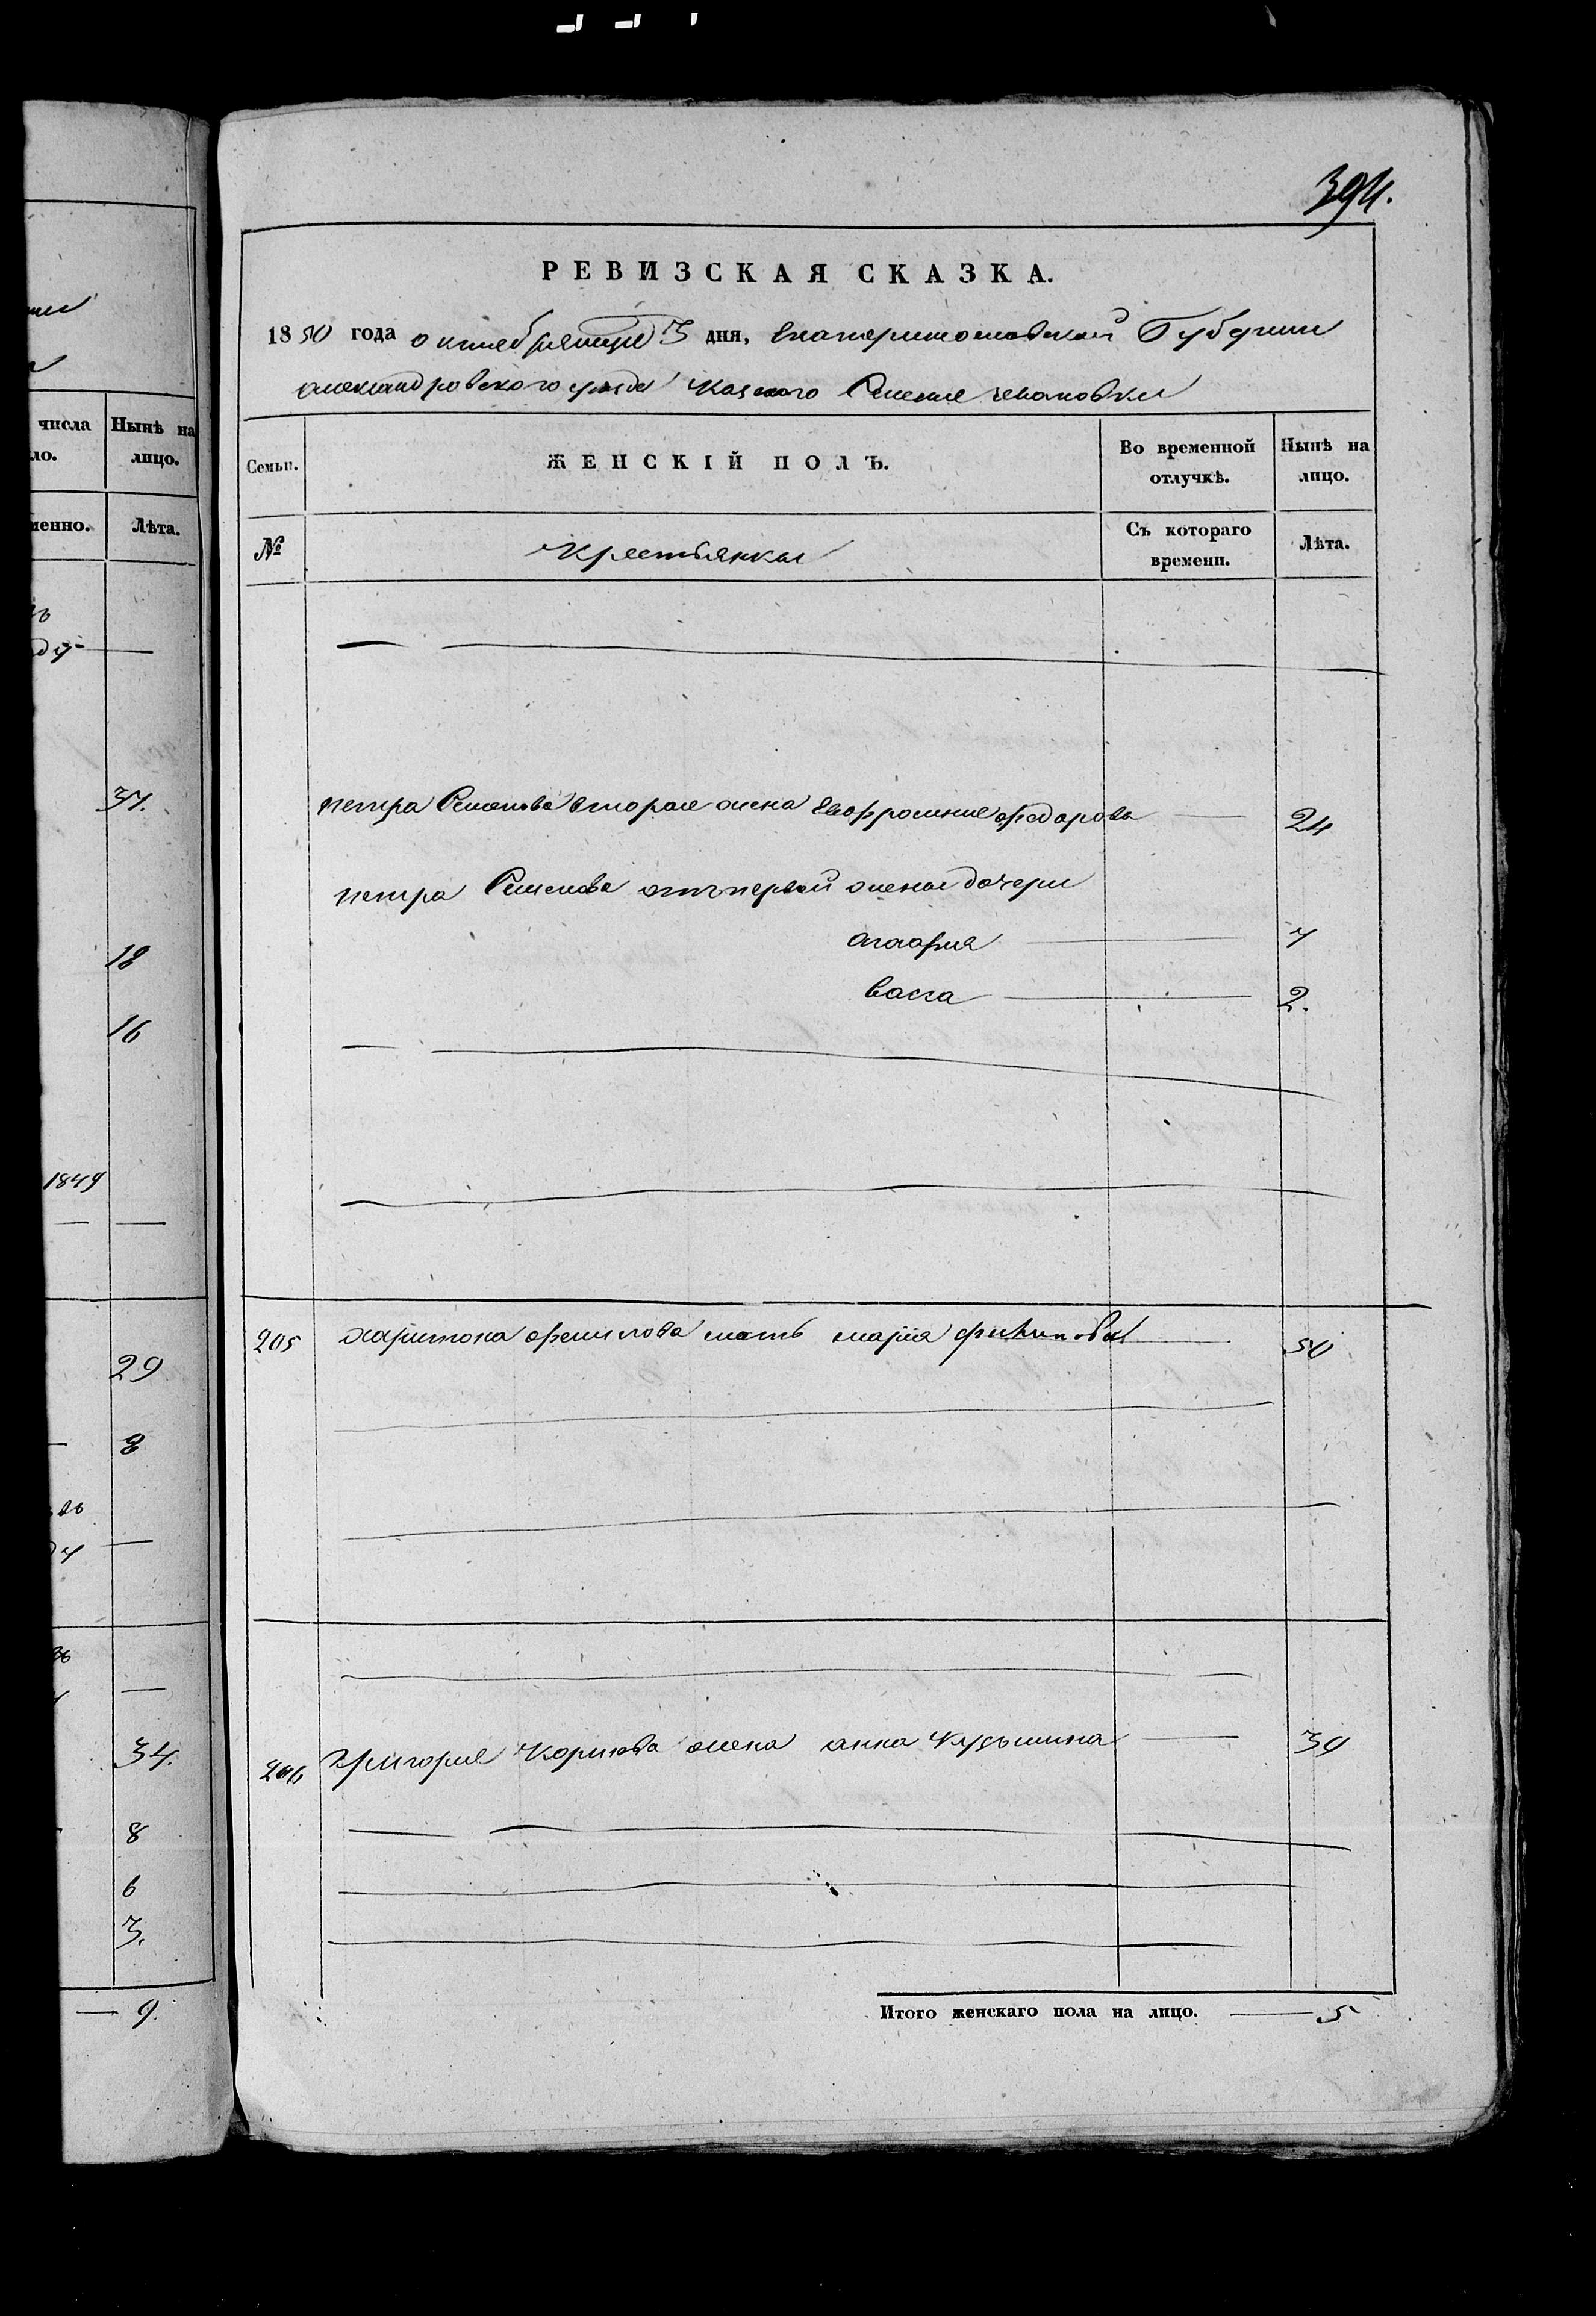 394.
РЕВИЗСКАЯ СКАЗКА.
1850 года октября 3 дня, Екатеринославской Губернии
александровского уезда Казеного Селения
числа
Нынѣ на лицо.
Семьи.
ЖЕНСКІЙ ПОЛЪ.
Во временной отлучкѣ.
Нынѣ на лицо.
Лѣта.
№
Крестьянки
Съ котораго времени.
Лѣта.
37.
петра Семенова вторая жена Евфросиния федорова — 24
петра Семенова отъ первой жены дочери
агафия — 7
18
васса — 2.
16
1849
205 харитона мать мария филипова — 50
29
8
34.
206 Григория Корнева жена анна Кузьмина — 39
8
6
3.
— 9.
Итого женскаго пола на лицо. — 5